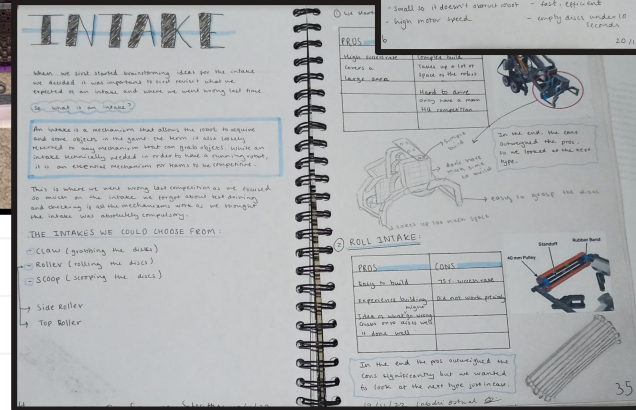 INTAKE
When we first started brainstorming ideas for the intake
we decided it was important to first revisit what we
expected of an intake and where we went wrong last time
So, what is an intake?
An intake is a mechanism that allows the robot to acquire
and store objects in the game. The term is also loosely
referred to any mechanism that can grab object. While an
intake technically needed in order to have a running robot,
it is an essential mechanism for teams to be competitive.
This is where we went wrong last competition as we focused
so much on the intake we forgot about test driving
and checking is all the mechanisms work as we thought
the intake was absolutely compulsory.
THE INTAKES WE COULD CHOOSE FROM:
CLAW (grabbing the disks)
Roller (rolling the discs)
SCOOP (scooping the discs)
Side Roller
Top Roller
- small so it doesn't obstruct robot
- high motor speed
- fast, efficient
- empty discs under 10
seconds
20/1
① We
PROS
High success rate
Covers a
large area
Complex build
Takes up a lot of
space on the robot
Hard to drive
only have a max
simple
don't have
easy to grasp the discs
takes up too much space
In the end, the cons
outweighed the pros.
So we looked at the next
type.
② ROLL INTAKE:
PROS
CONS
Easy to build
75% success rate
Experience building
Did not work previously
Idea of what go wrong
Grabs onto discs well
if done well
40 mm Pulley
Standoff
Rubber Band
In the end the pros outweighed the
cons significantly but we wanted
to look at the next type just in case.
35